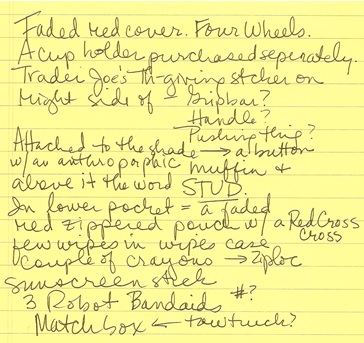 Faded red cover. Four Wheels.
A cup holder purchased seperately.
Trader Joe's Th-giving stcker on
right side of – Gripbar?
Handle?
Pushing thing?
Attached to the shade → a button
w/ an anthropophic muffin +
above it the word STUD.
In lower pocket = a faded
red zippered pouch w/ a Red Cross
cross
few wipes in wipes case
couple of crayons → Ziploc
sunscreen stick
3 Robot Bandaids #?
Matchbox ← towtruck?